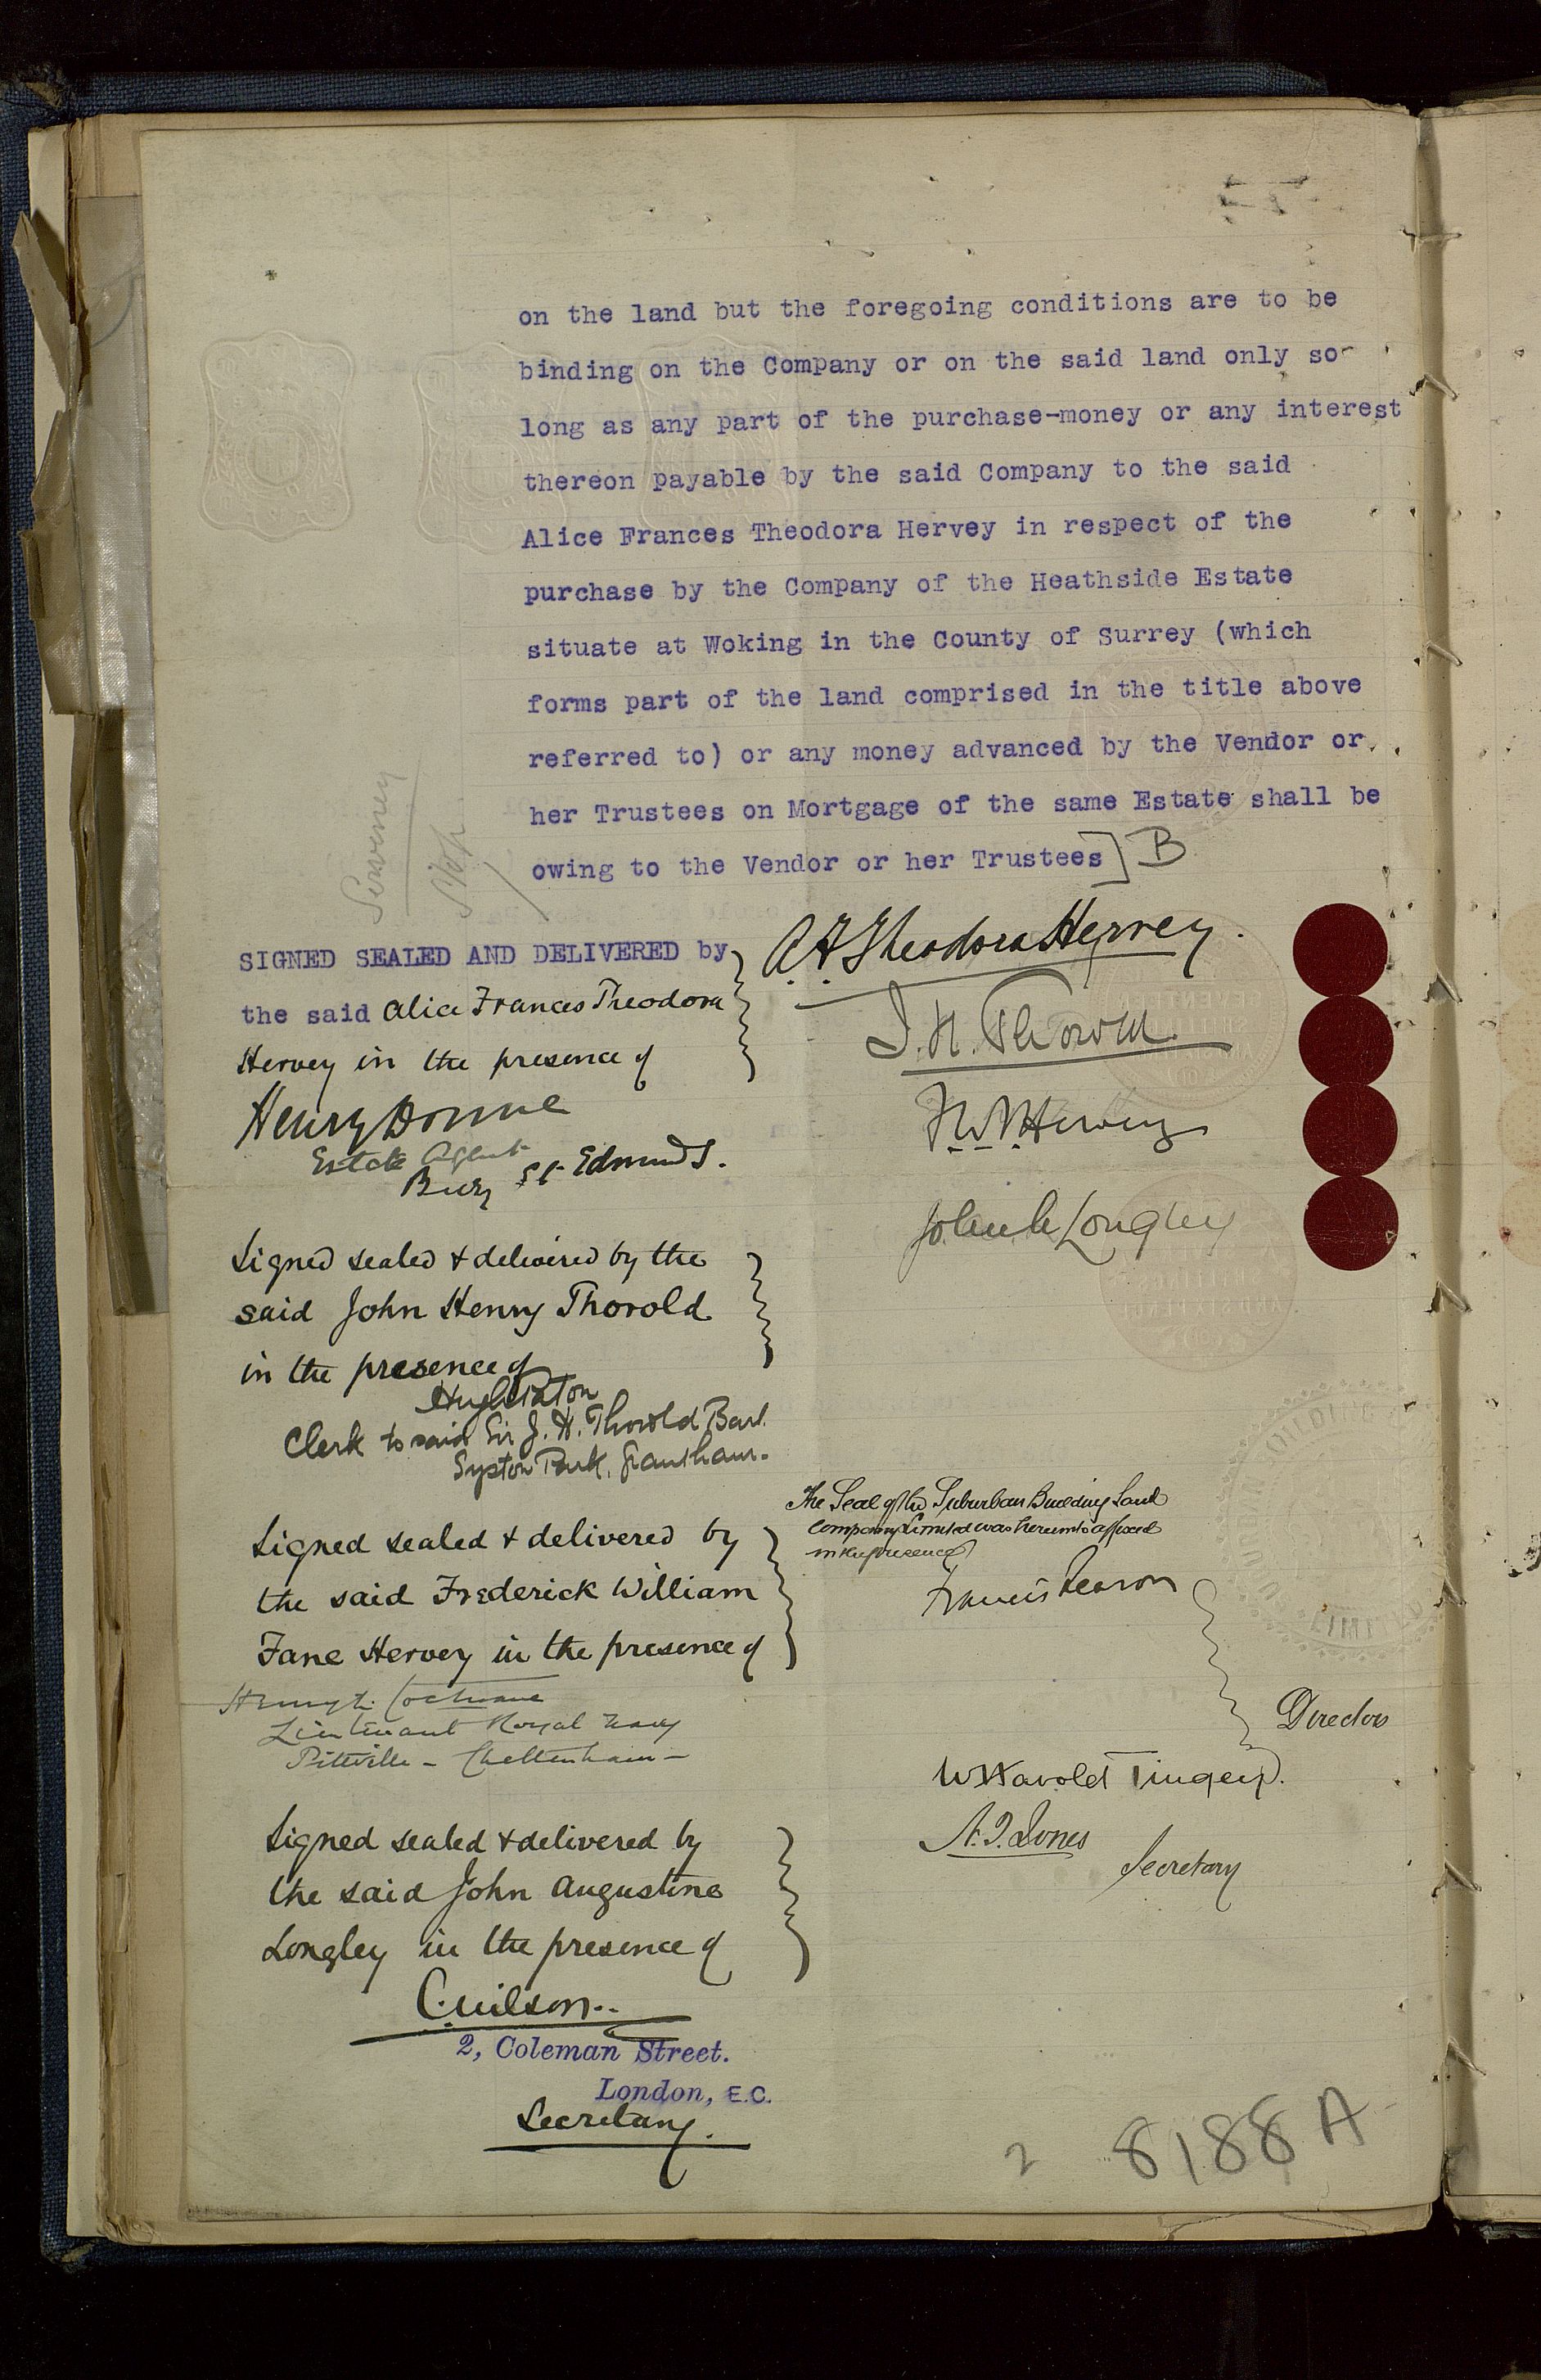 on the land but the foregoing conditions are to be
binding on the Company or on the said land only so
long as any part of the purchase-money or any interest
thereon payable by the said Company to the said
Alice Frances Theodora Hervey in respect of the
purchase by the Company of the Heathside Estate
situate at Woking in the County of Surrey (which
forms part of the land comprised in the title above
referred to) or any money advanced by the Vendor or
her Trustees on Mortgage of the same Estate shall be
owing to the Vendor or her Trustees] B
SIGNED SEALED AND DELIVERED by
the said Alice Frances Theodora
Hervey in the presence of
Henry Donne
Estate Agent
Bury St Edmunds.
A F Theodora Hervey.
J. H. Thorold
F W F Hervey
John A Longley
Signed sealed & delivered by the
said John Henry Thorold
in the presence of
Clerk to said Sir J. H. Thorold Bart.
Syston Park, Grantham.
Signed sealed & delivered by
the said Frederick William
Fane Hervey in the presence of
Cochrane
Lieutenant Royal Navy
Pittville - Cheltenham -
The Seal of the Suburban Building Land
Company Limited was hereunto affixed
in the presence of
Francis Pearson
Directors
W Harold Tingey.
A. J. Jones
Secretary
Signed sealed & delivered by
the said John Augustine
Longley in the presence of
C. Wilson..
2, Coleman Street.
London, E.C.
Secretary.
2 8188 A